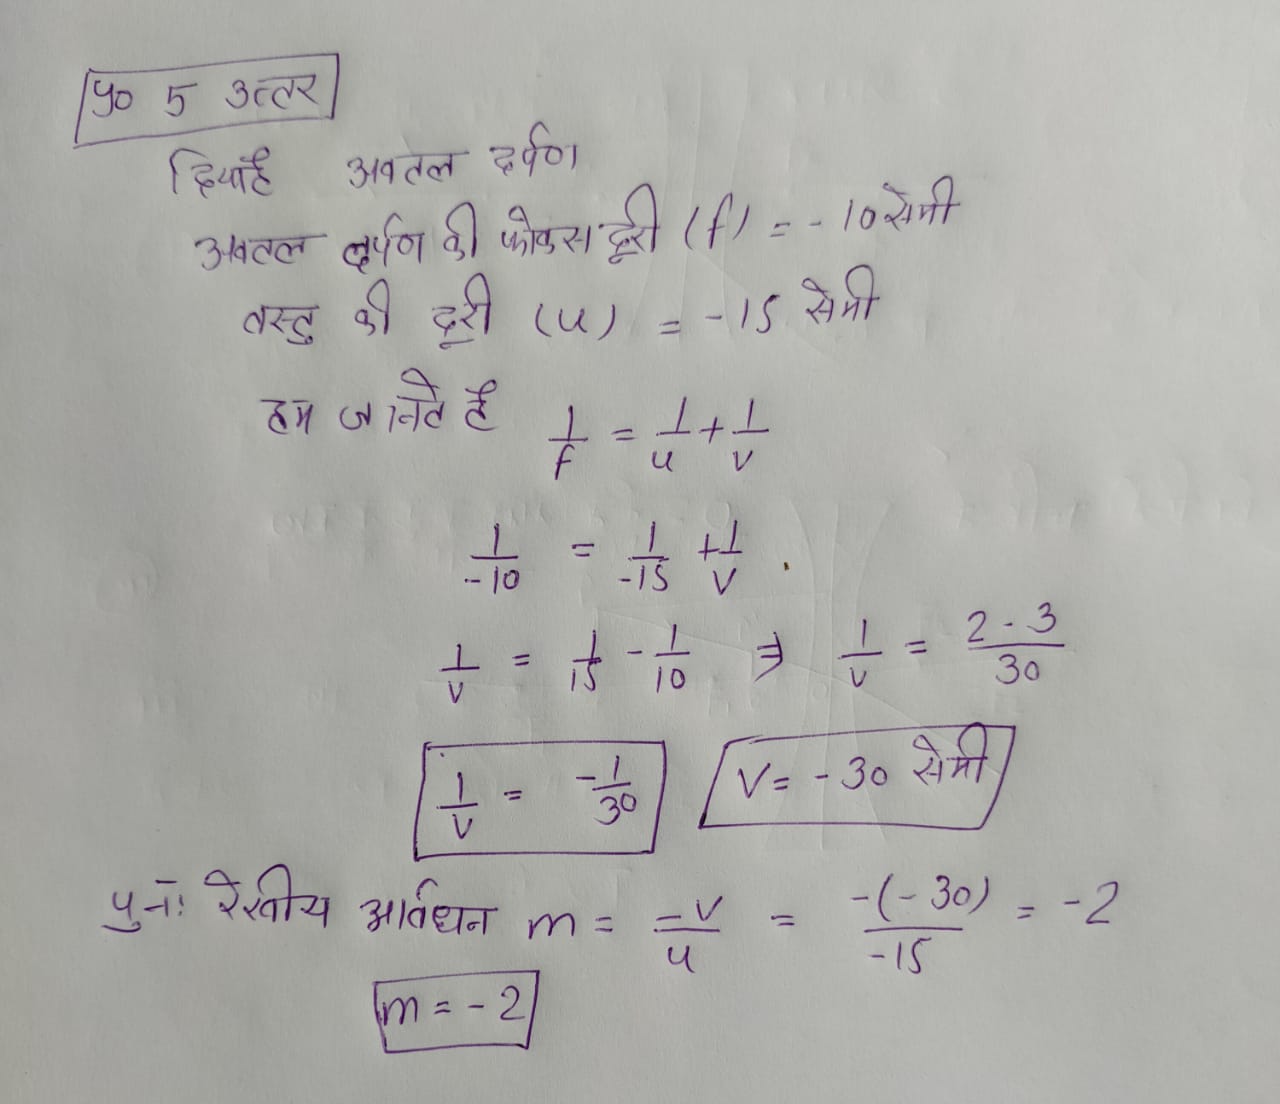 प्र० 5 उत्तर
दिया है अवतल दर्पण
अवतल दर्पण की फोकस दूरी (f) = - 10 सेमी
वस्तु की दूरी (u) = - 15 सेमी
हम जानते है 1/f = 1/u + 1/v
1/-10 = 1/-15 + 1/v
1/v = 1/15 - 1/10 ⇒ 1/v = 2 - 3/30
1/v = -1/30 v = - 30 सेमी
पुनः रेखीय आर्वधन m = -v/u = -(-30)/-15 = -2
m = - 2